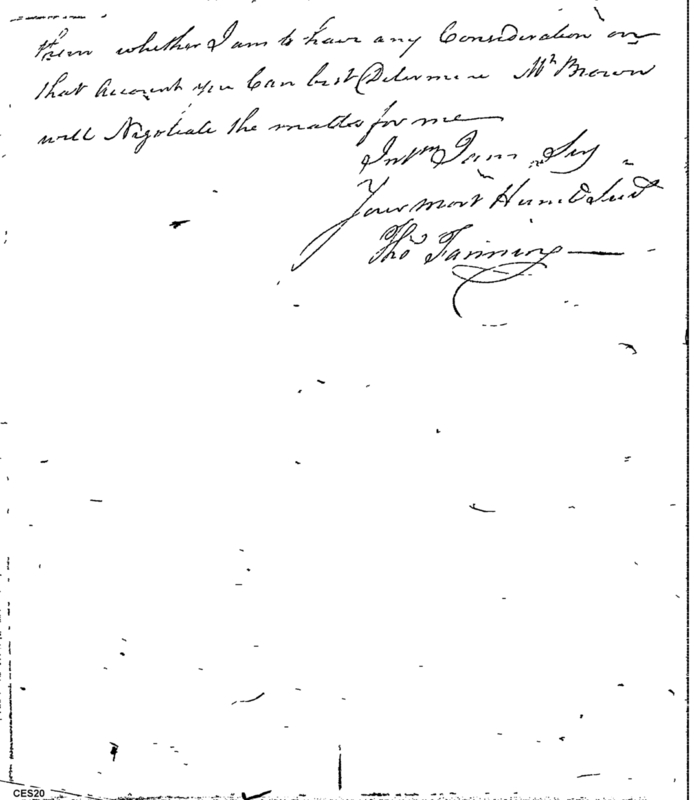 them whether I am to have any Consideration on
that Account you Can best Determine Mr Brown
will Negotiate the matter for me
Intm I am Sir
Your most Humbl Servt
Thos Fanning
CES20